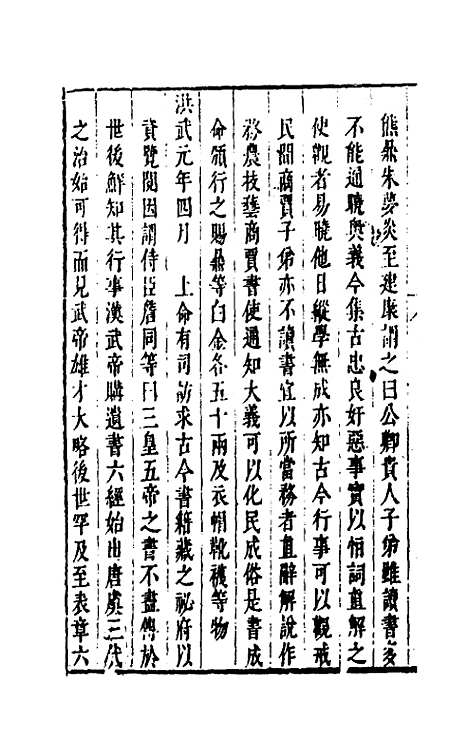 熊鼎朱夢炎至建康謂之曰公卿貴人子弟雖讀書多
不能通曉奥義今集古忠良奸惡事實以恒詞直解之
使觀者易曉他日縱學無成亦知古今行事可以觀戒
民間商賈子弟亦不讀書宜以所當務者直辭解說作
務農技藝商賈書使通知大義可以化民成俗是書成
命頒行之賜鼎等白金各五十兩及衣帽靴襪等物
洪武元年四月 上命有司訪求古今書籍藏之祕府以
資覽閱因謂侍臣詹同等曰三皇五帝之書不盡傳於
世後鮮知其行事漢武帝購遺書六經始出唐虞三代
之治始可得而見武帝雄才大略後世罕及至表章六